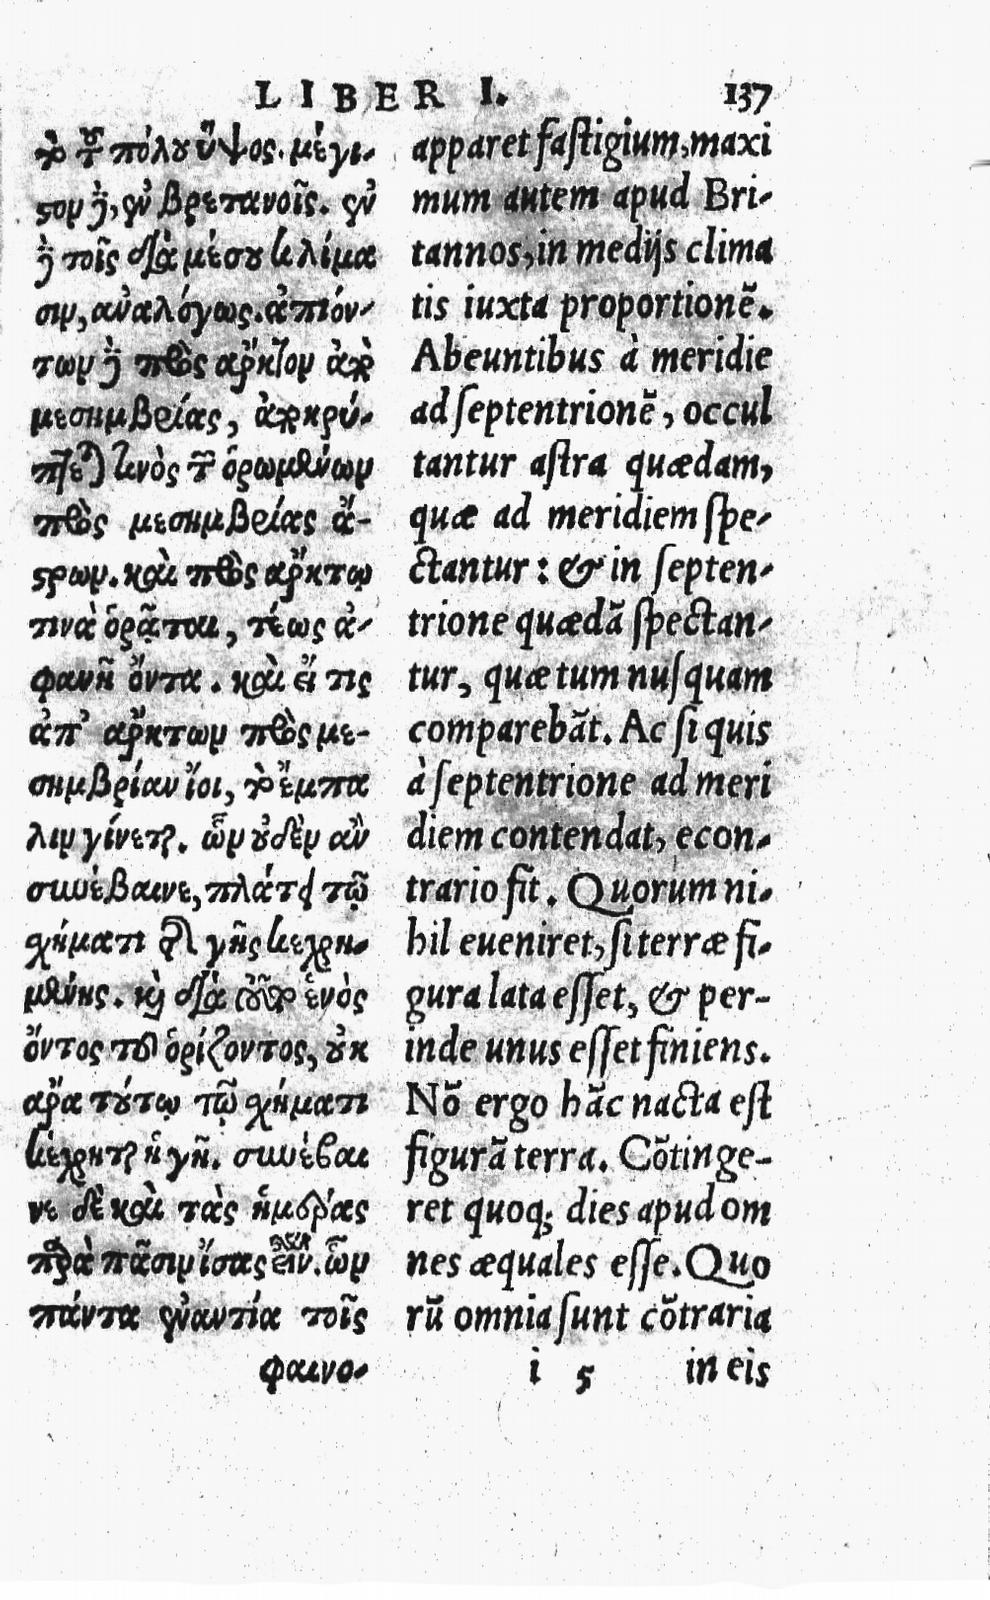 LIBER I. 137
τὸ τοῦ πόλου ὕψος. μέγι-
στον δὲ, ἐν βρετανοῖς. ἐν
δὲ τοῖς διὰ μέσου κλίμα
σιν, ἀναλόγως. ἀπιόν-
των δὲ πρὸς ἄρκτον ἀπὸ
μεσημβρίας, ἀποκρύ-
πτεταί τινὰ τῶν ὁρωμένων
πρὸς μεσημβρίας ἄ-
στρων. καὶ πρὸς ἄρκτῳ
τινὰ ὁρᾶται, τέως ἀ-
φανῆ ὄντα. καὶ εἴ τις
ἀπ' ἄρκτων πρὸς με-
σημβρίαν ἴοι, τὸ ἔμπα
λιν γίνεται. ὧν οὐδὲν ἂν
συνέβαινε, πλάτει τῷ
σχήματι τῆς γῆς κεχρη-
μένης. καὶ διὰ τοῦτο ἑνὸς
ὄντος τοῦ ὁρίζοντος, οὐκ
ἄρα τούτῳ τῷ σχήματι
κέχρηται ἡ γῆ. συνέβαι
νε δὲ καὶ τὰς ἡμέρας
παρὰ πᾶσιν ἴσας εἶναι. ὧν
πάντα ἐναντία τοῖς
φαινο-
apparet fastigium, maxi
mum autem apud Bri-
tannos, in medijs clima
tis iuxta proportionē.
Abeuntibus à meridie
ad septentrionē, occul
tantur astra quædam,
quæ ad meridiem spe-
ctantur: & in septen-
trione quædā spectan-
tur, quæ tum nusquam
comparebāt. Ac si quis
à septentrione ad meri
diem contendat, econ-
trario fit. Quorum ni-
hil eueniret, si terræ fi-
gura lata esset, & per-
inde unus esset finiens.
Nō ergo hāc nacta est
figurā terra. Cōtinge-
ret quoq; dies apud om
nes æquales esse. Quo
rū omnia sunt cōtraria
i 5 in eis